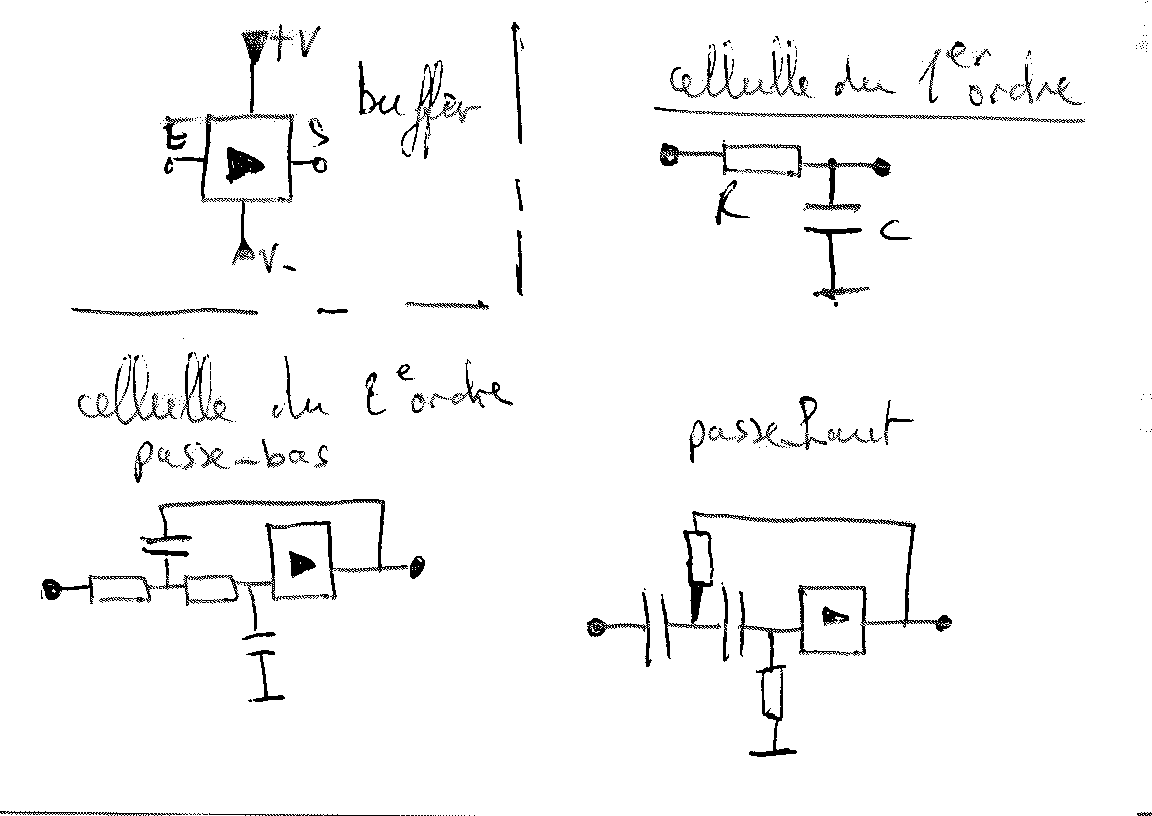 +V
buffer
E
S
V-
cellulle du 1er ordre
R
C
cellulle du 2e ordre
passe-bas
passe-haut